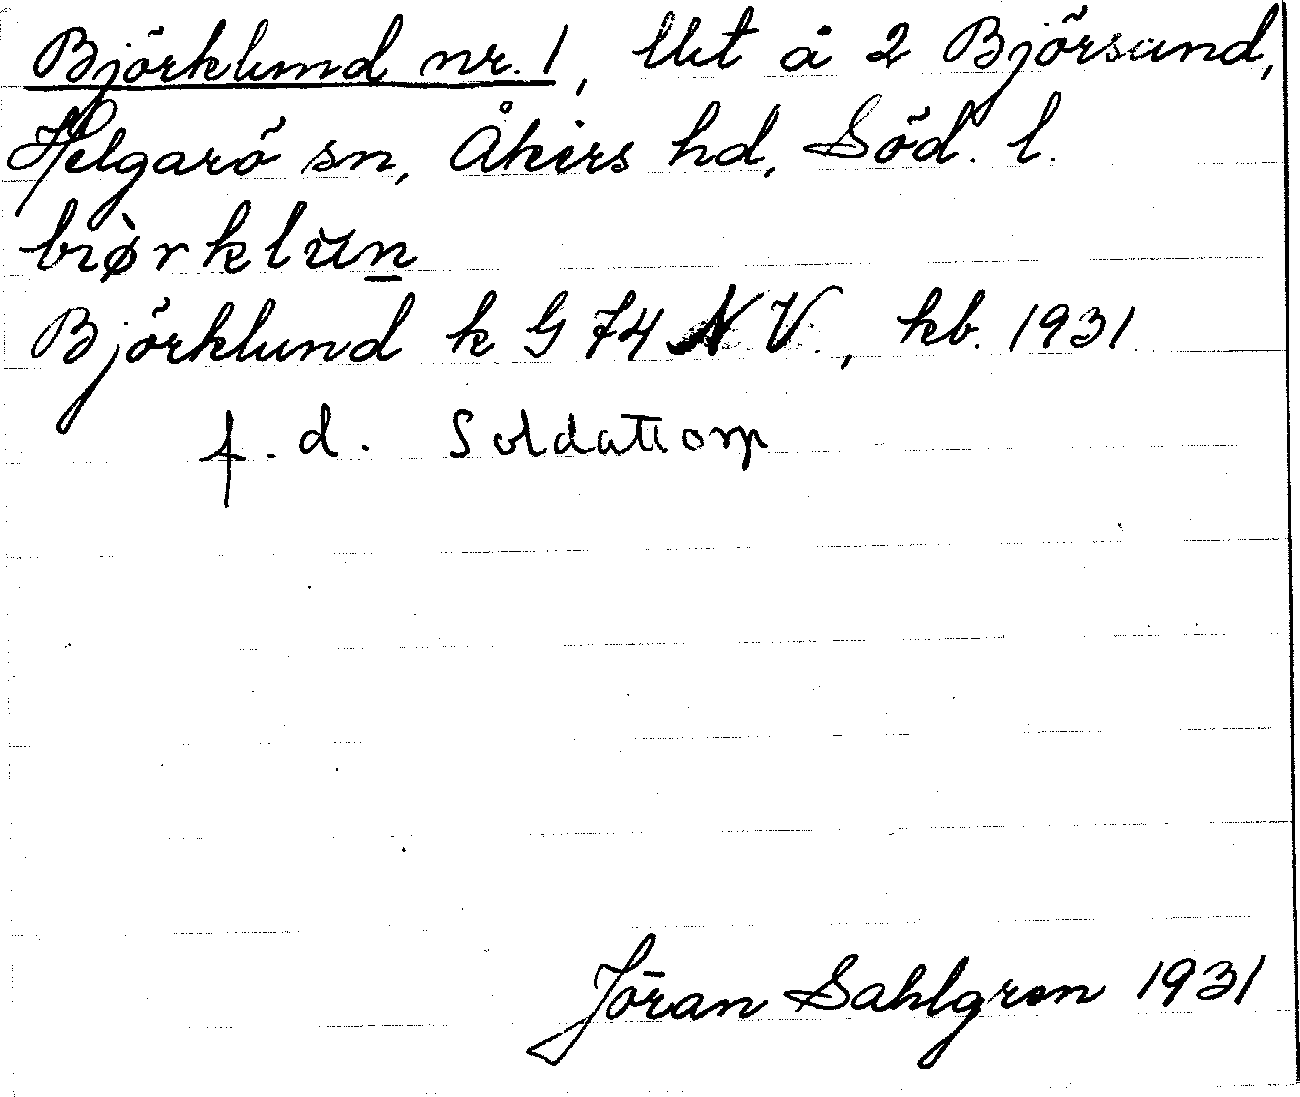 Björklund nr. 1, Utt å 2 Björsund,
Helgarö sn, Åkers hd, Söd. l.
biørklun
Björklund k G 74 N V., kb. 1931
f. d. Soldattorp
Jöran Sahlgren 1931